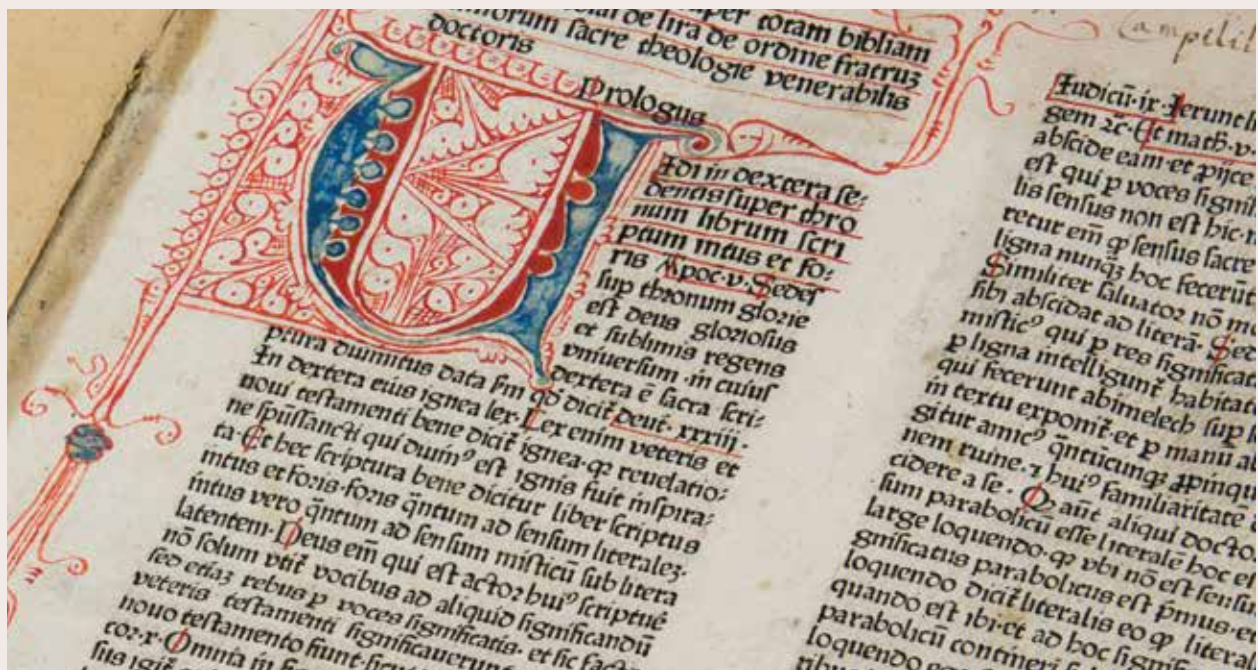 totam bibliam
de lira de ordine fratruʒ
sacre theologie venerabilis
doctoris
Prologus
Idi in dextera se⸗
dentis super thro
num librum scri
ptum intus et fo⸗
ris Apoc·v·Sedeſ
sup thronum glorie
est deus gloriosus
et sublimis regens
vniversum·in cuiuſ
dextera ē sacra scri⸗
ptura diuinitus data ꝓm qd dicit̄ deut·xxxiii·
In dextera eius ignea lex·Lex enim veteris et
noui testamenti bene dicit̄ ignea·qꝛ reuelatio⸗
ne spūssancti qui diuinꝰ est ignis fuit inspira⸗
ta·Et hec scriptura bene dicitur liber scriptus
intus et foris·foris q̄ntum ad sensum literaleʒ·
intus vero q̄ntum ad sensum misticū sub litera
latentem·Deus em̄ qui est actoꝛ huiꝰ scriptuē
nō solum vtit̄ vocibus ad aliquid significandū
sed etiaʒ rebus ꝑ voces significatis·et sic
veteris testamenti significauerunt
nouo testamento fiunt·
coꝛ·x·Omnia in
Campelil
Iudicū·ix·Ierunt
gem ꝛc·Et math·v·
abscide eam·et ꝓijce
est qui ꝑ voces
lis sensus non est hic·
retur em̄ ꝙ sensus sacre
ligna nunqʒ hoc fecerūt
Similiter saluatoꝛ nō
sibi abscidat ad literā·
misticꝰ qui ꝑ res significat
ꝑ ligna intelligunt̄ habitat
qui fecerunt abimelech sup
in textu exponit̄·et ꝑ manū
gitur amicꝰ q̄ntūcunqʒ ꝓpinqu
nem ruine·⁊ huiꝰ familiaritatē
cidere a se·Qꝫ aūt aliqui docto
sum parabolicū esse literalē hoc
large loquendo·ꝙ vbi nō est sensu
gnificatus parabolicus est p̄mus·
loquendo dicit̄ literalis eo ꝙ
quando est ibi·et ad hoc
parabolicū
loquendo